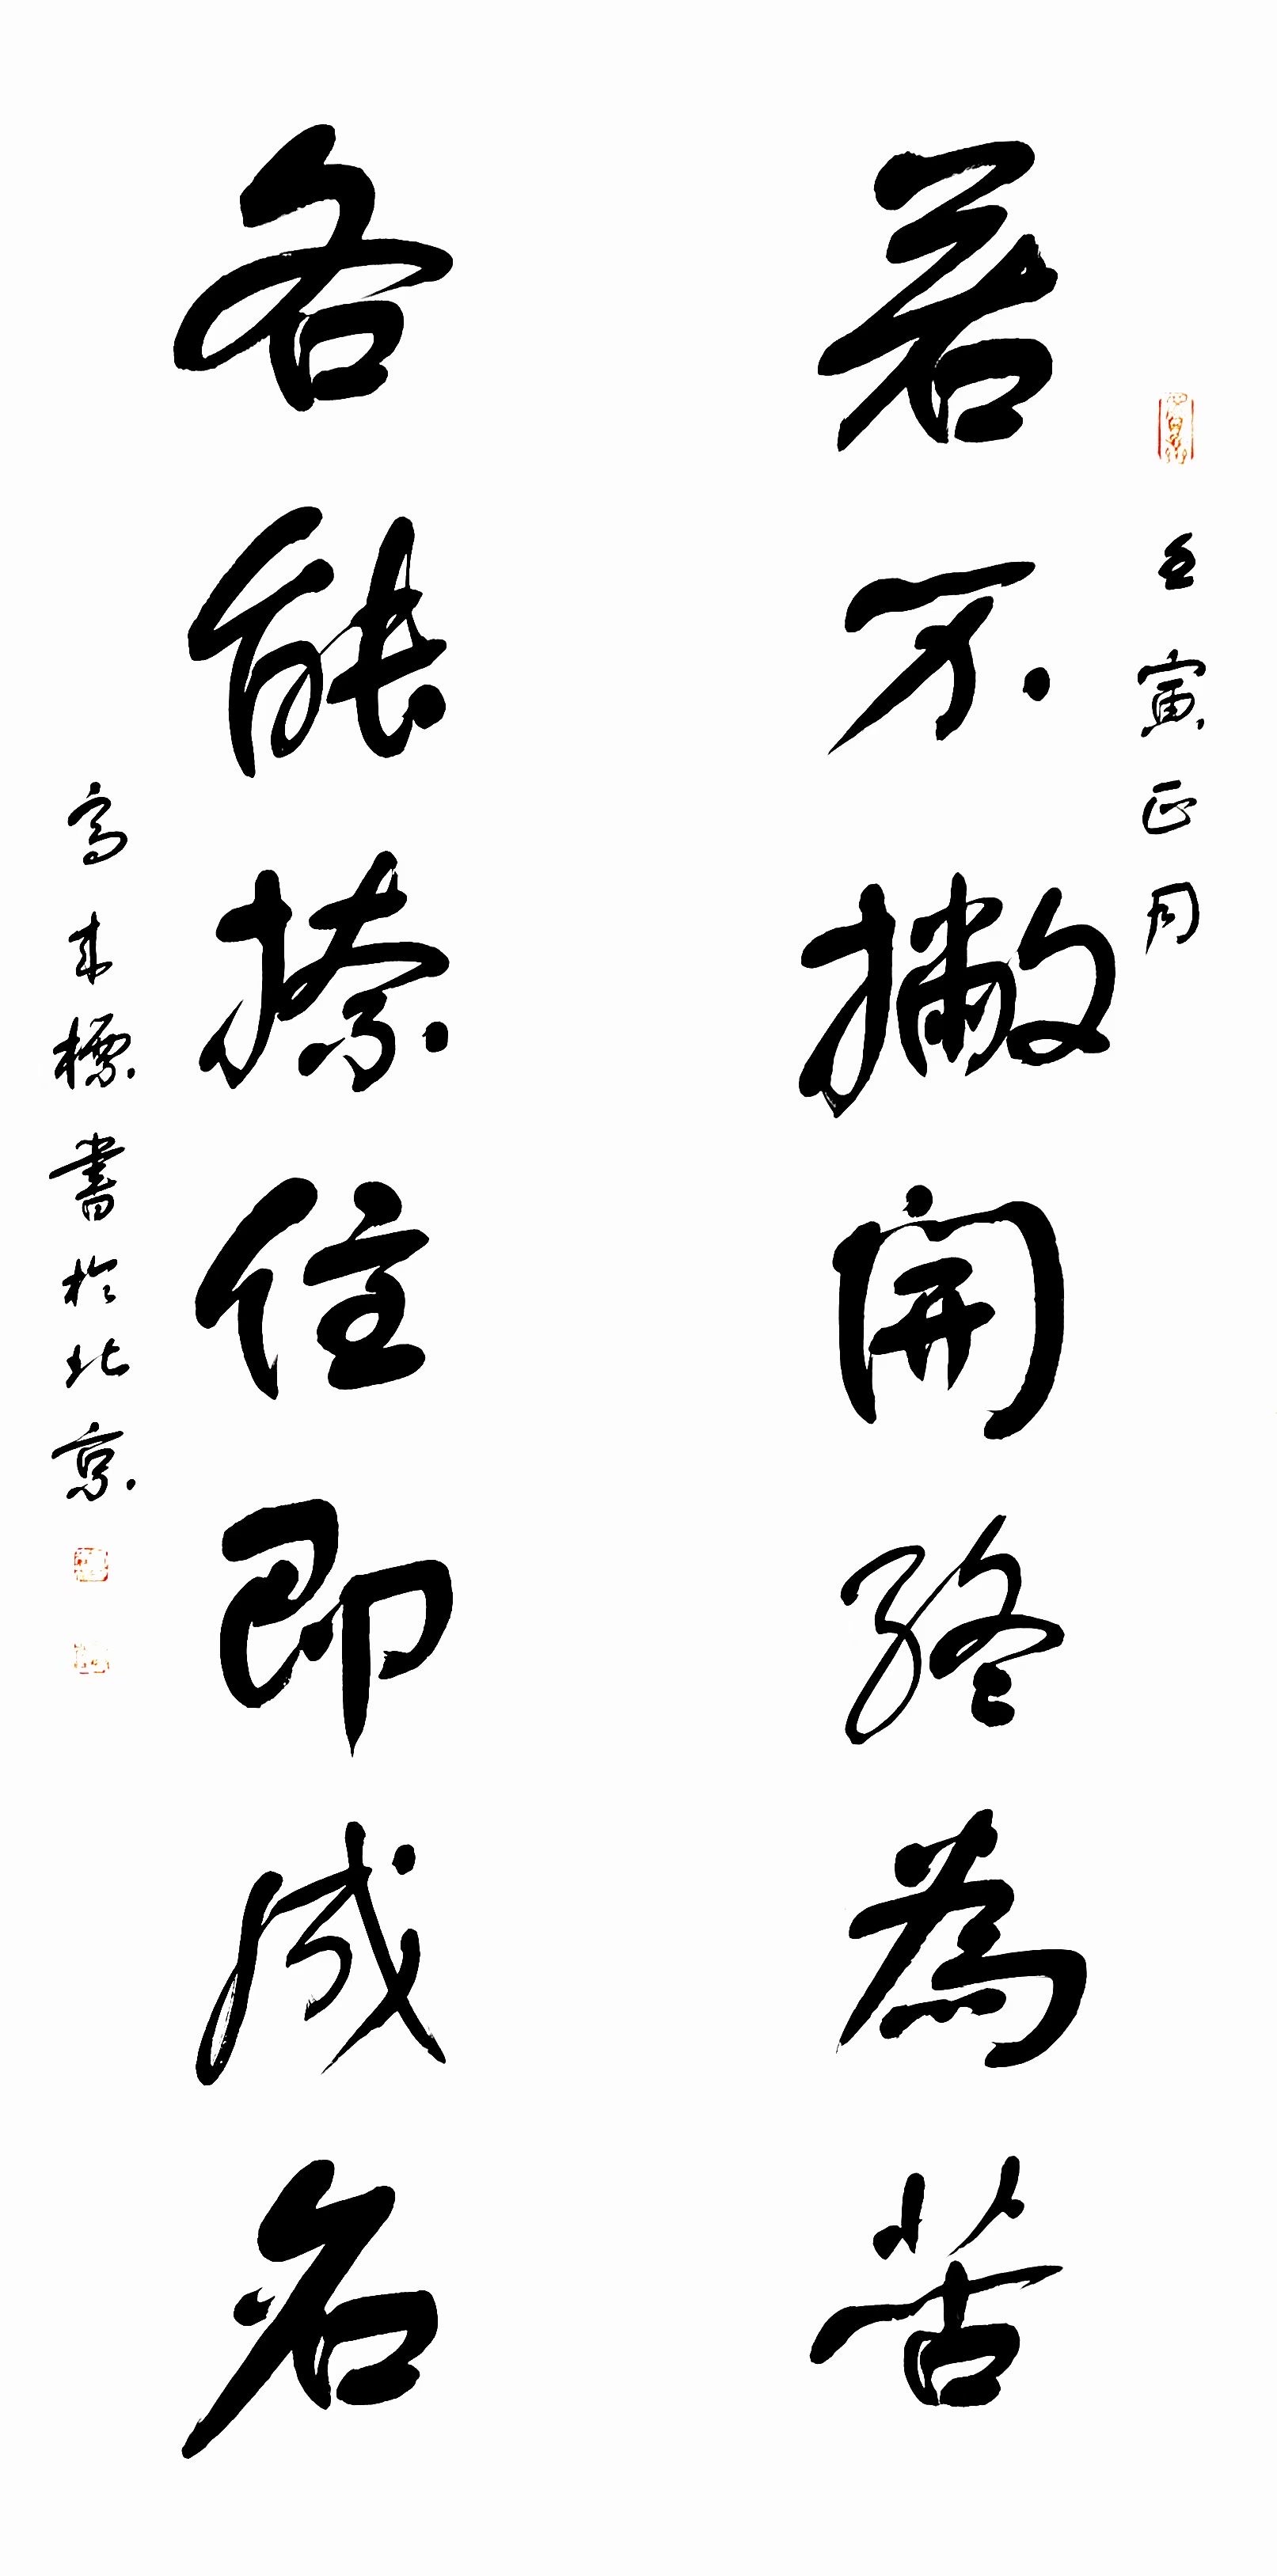 壬寅正月
若不撇開終為苦
各能捺住即成名
高來標書於北京